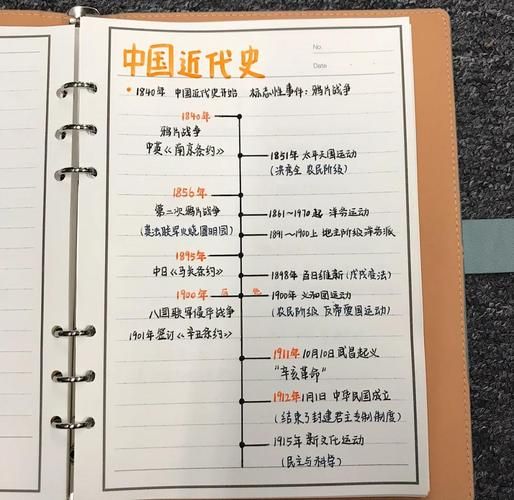 中国近代史
No.
Date
• 1840年 中国近代史开始 标志性事件：鸦片战争
1840年
鸦片战争
中英《南京条约》
1851年 太平天国运动
(洪秀全 农民阶级)
1856年
第二次鸦片战争
(英法联军火烧圆明园)
1861~1970起 洋务运动
1891~1900上 地主阶级洋务派
1895年
中日《马关条约》
1898年 百日维新(戊戌变法)
1900年
八国联军侵华战争
1901年签订《辛丑条约》
1900年 义和团运动
(农民阶级 反帝爱国运动)
1911年10月10日武昌起义
"辛亥革命"
1912年1月1日 中华民国成立
(结束了封建君主专制制度)
1915年 新文化运动
(民主与科学)